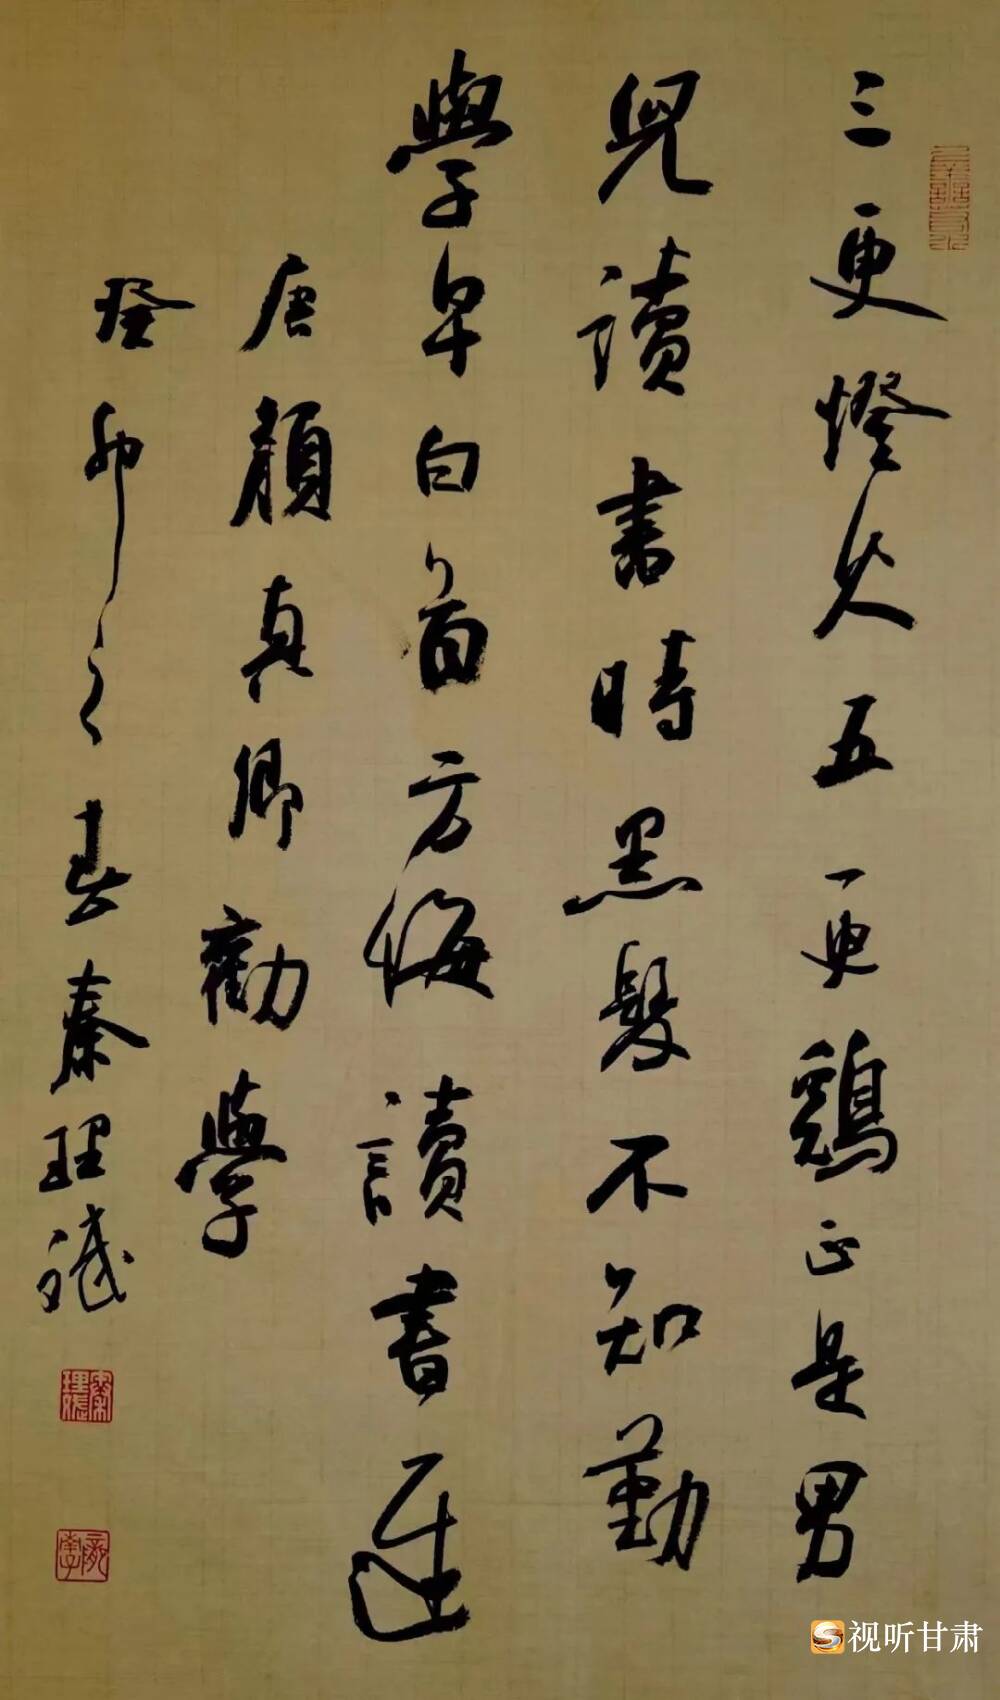 三更燈火五更鷄正是男
兒讀書時黑髮不知勤
學早白首方悔讀書遲
唐顏真卿勸學
癸卯之春秦理斌
視听甘肃